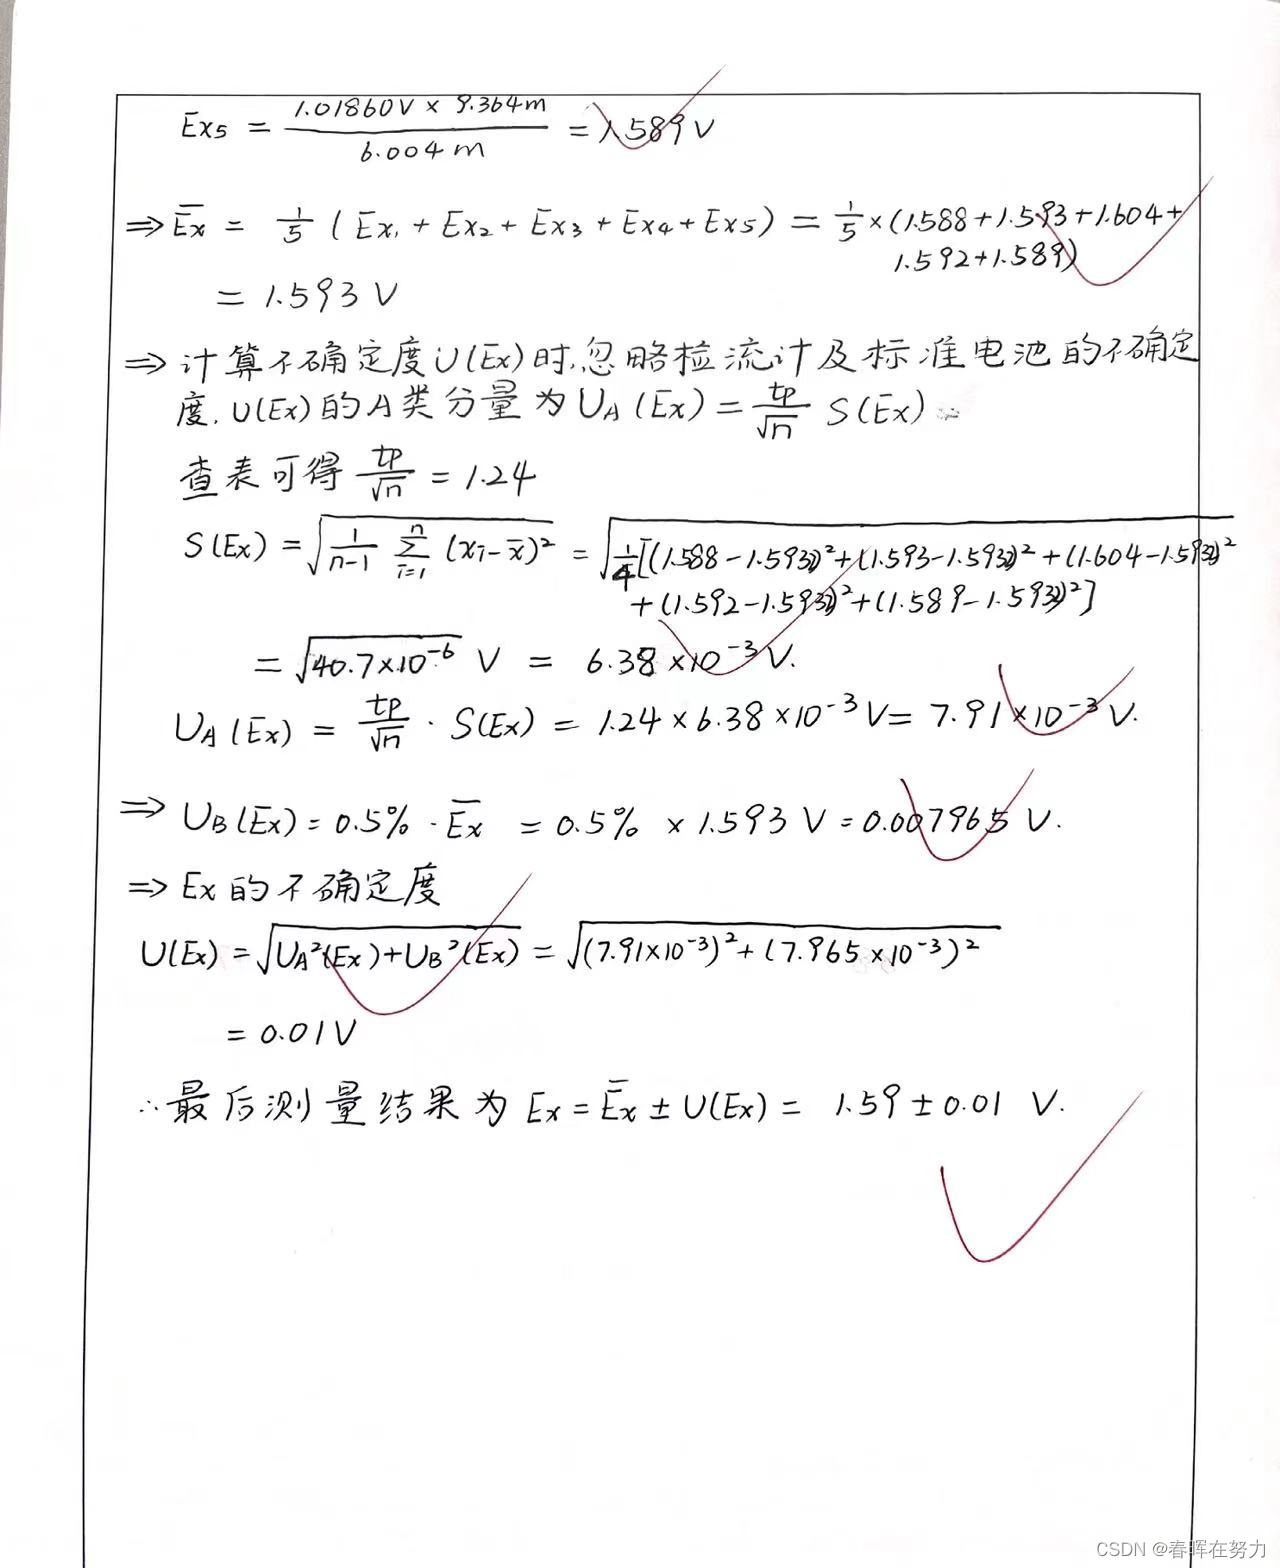 Ex5 = 1.01860V × 9.364m / 6.004m = 1.589V
⇒ E̅x = 1/5 (Ex1 + Ex2 + Ex3 + Ex4 + Ex5) = 1/5 × (1.588 + 1.593 + 1.604 +
1.592 + 1.589)
= 1.593 V
⇒ 计算不确定度U(Ex)时,忽略检流计及标准电池的不确定
度, U(Ex)的A类分量为 UA(Ex) = tp/√n S(Ex)
查表可得 tp/√n = 1.24
S(Ex) = √(1/(n-1) Σ_{i=1}^{n} (xi - x̅)²) = √(1/4[(1.588 - 1.593)² + (1.593 - 1.593)² + (1.604 - 1.593)²
+ (1.592 - 1.593)² + (1.589 - 1.593)²]
= √(40.7×10⁻⁶) V = 6.38 × 10⁻³ V.
UA(Ex) = tp/√n · S(Ex) = 1.24 × 6.38 × 10⁻³ V = 7.91 × 10⁻³ V.
⇒ UB(Ex) = 0.5% · E̅x = 0.5% × 1.593 V = 0.007965 V.
⇒ Ex的不确定度
U(Ex) = √(UA²(Ex) + UB²(Ex)) = √((7.91×10⁻³)² + (7.965×10⁻³)²)
= 0.01V
∴最后测量结果为 Ex = E̅x ± U(Ex) = 1.59 ± 0.01 V.
CSDN @春晖在努力